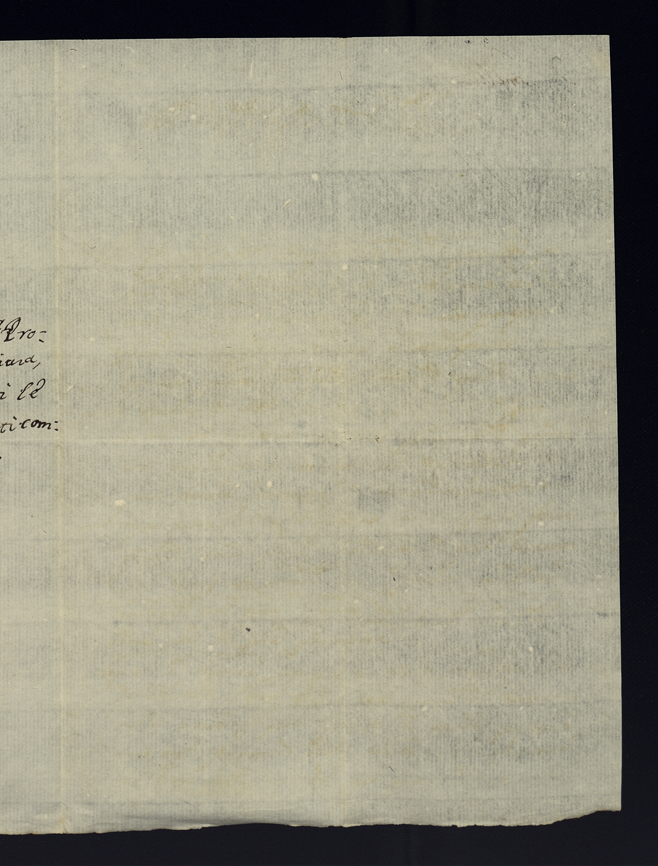 Pro=
iara,
i le
ti com: